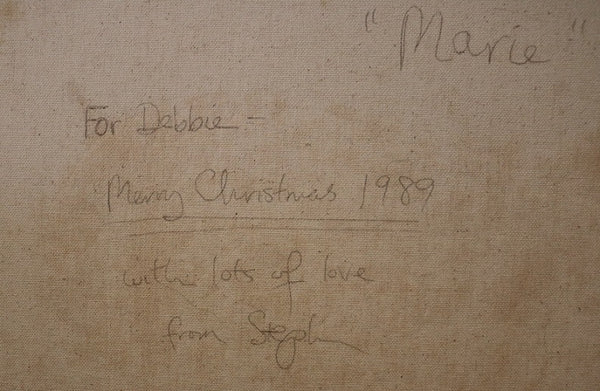 "Marie"
For Debbie –
Merry Christmas 1989
with lots of love
from Stephen